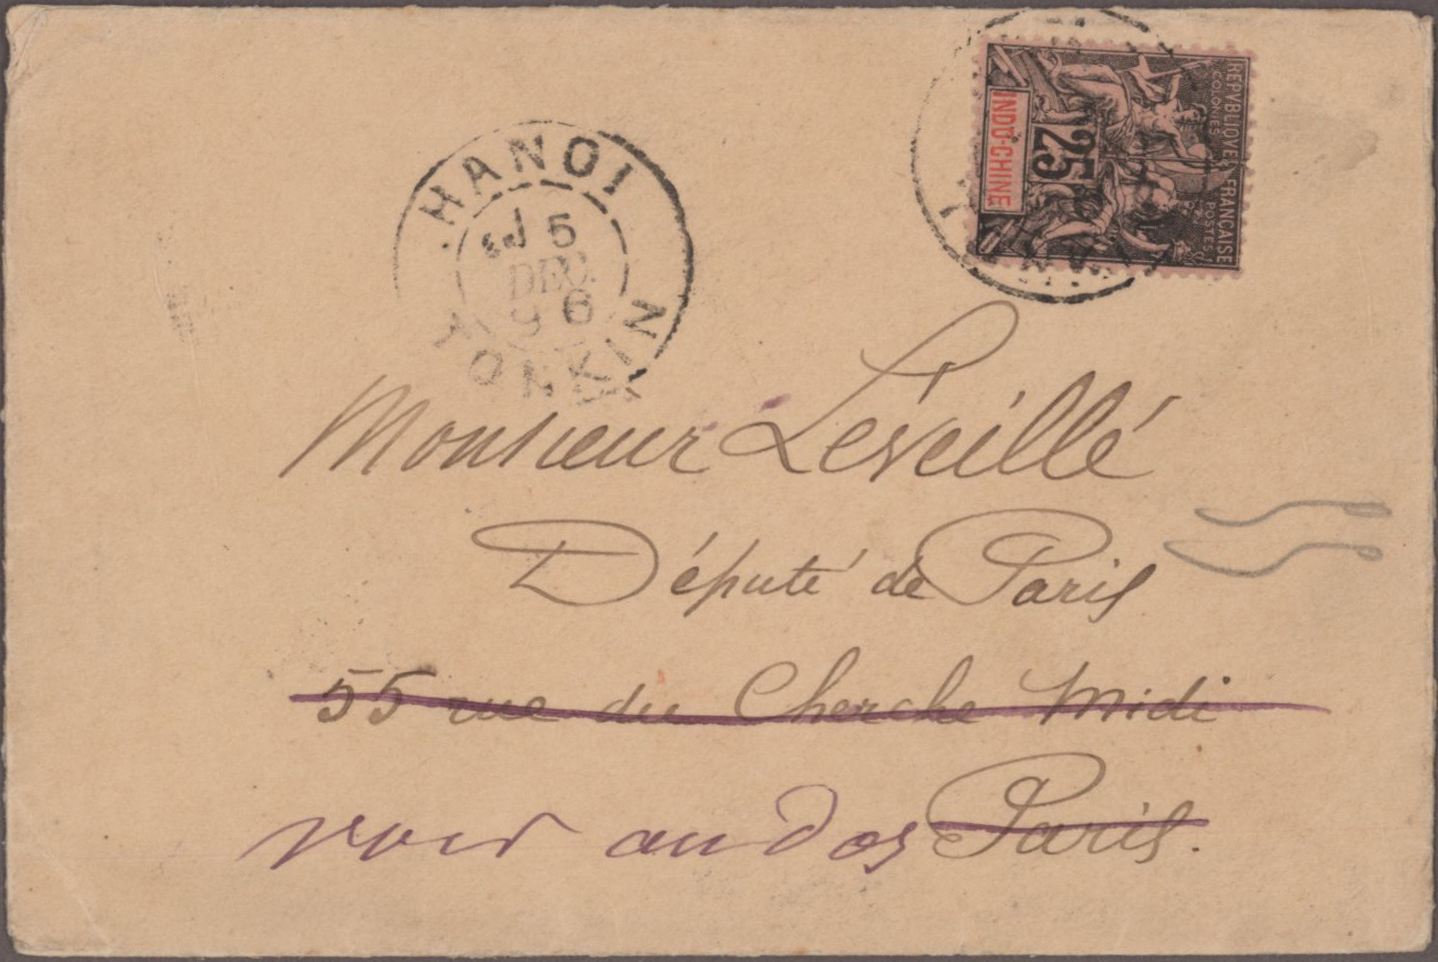 HANOI
5
DEC.
96
TONKIN
REPVBLIQVE FRANÇAISE
COLONIES POSTES
25
INDO-CHINE
Monsieur Léveillé
Député de Paris
55 rue du Cherche Midi
Paris.
voir au dos